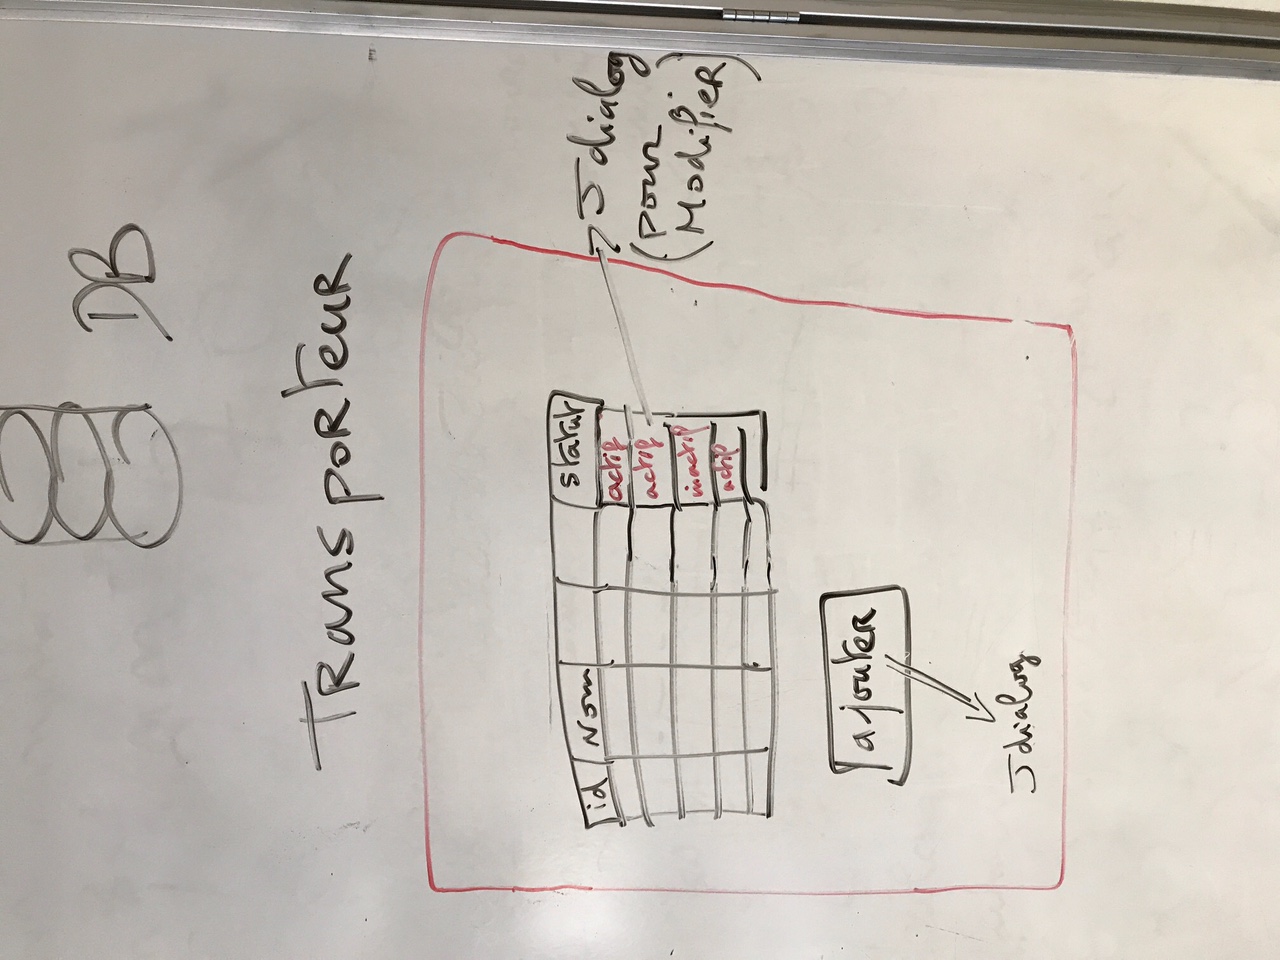 DB
Transporteur
id Nom statut
actif
actif
inactif
actif
Jdialog
(pour
Modifier)
ajouter
Jdialog